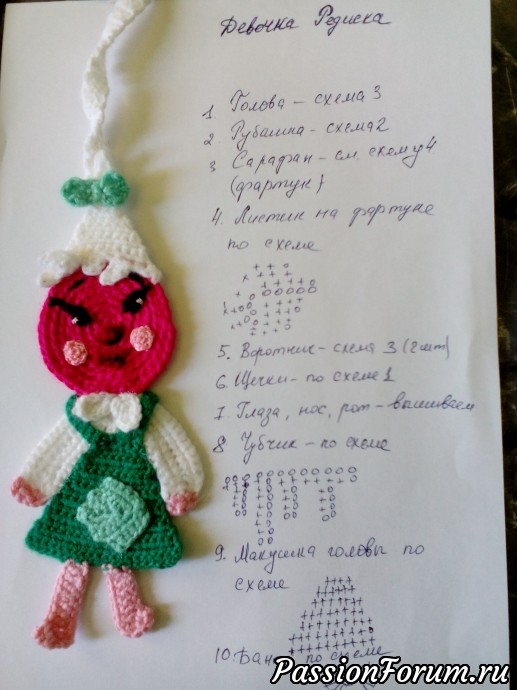 Девочка Редиска
1. Голова - схема 3
2 Рубашка - схема 2
3 Сарафан - см. схему 4
(фартук)
4. Листик на фартуке
по схеме
5. Воротник - схема 3 (2 шт)
6 Щечки - по схеме 1
7. Глаза, нос, рот - вышиваем
8. Чубчик - по схеме
9. Макушка головы по
схеме
10. Бан по схеме
PassionForum.ru